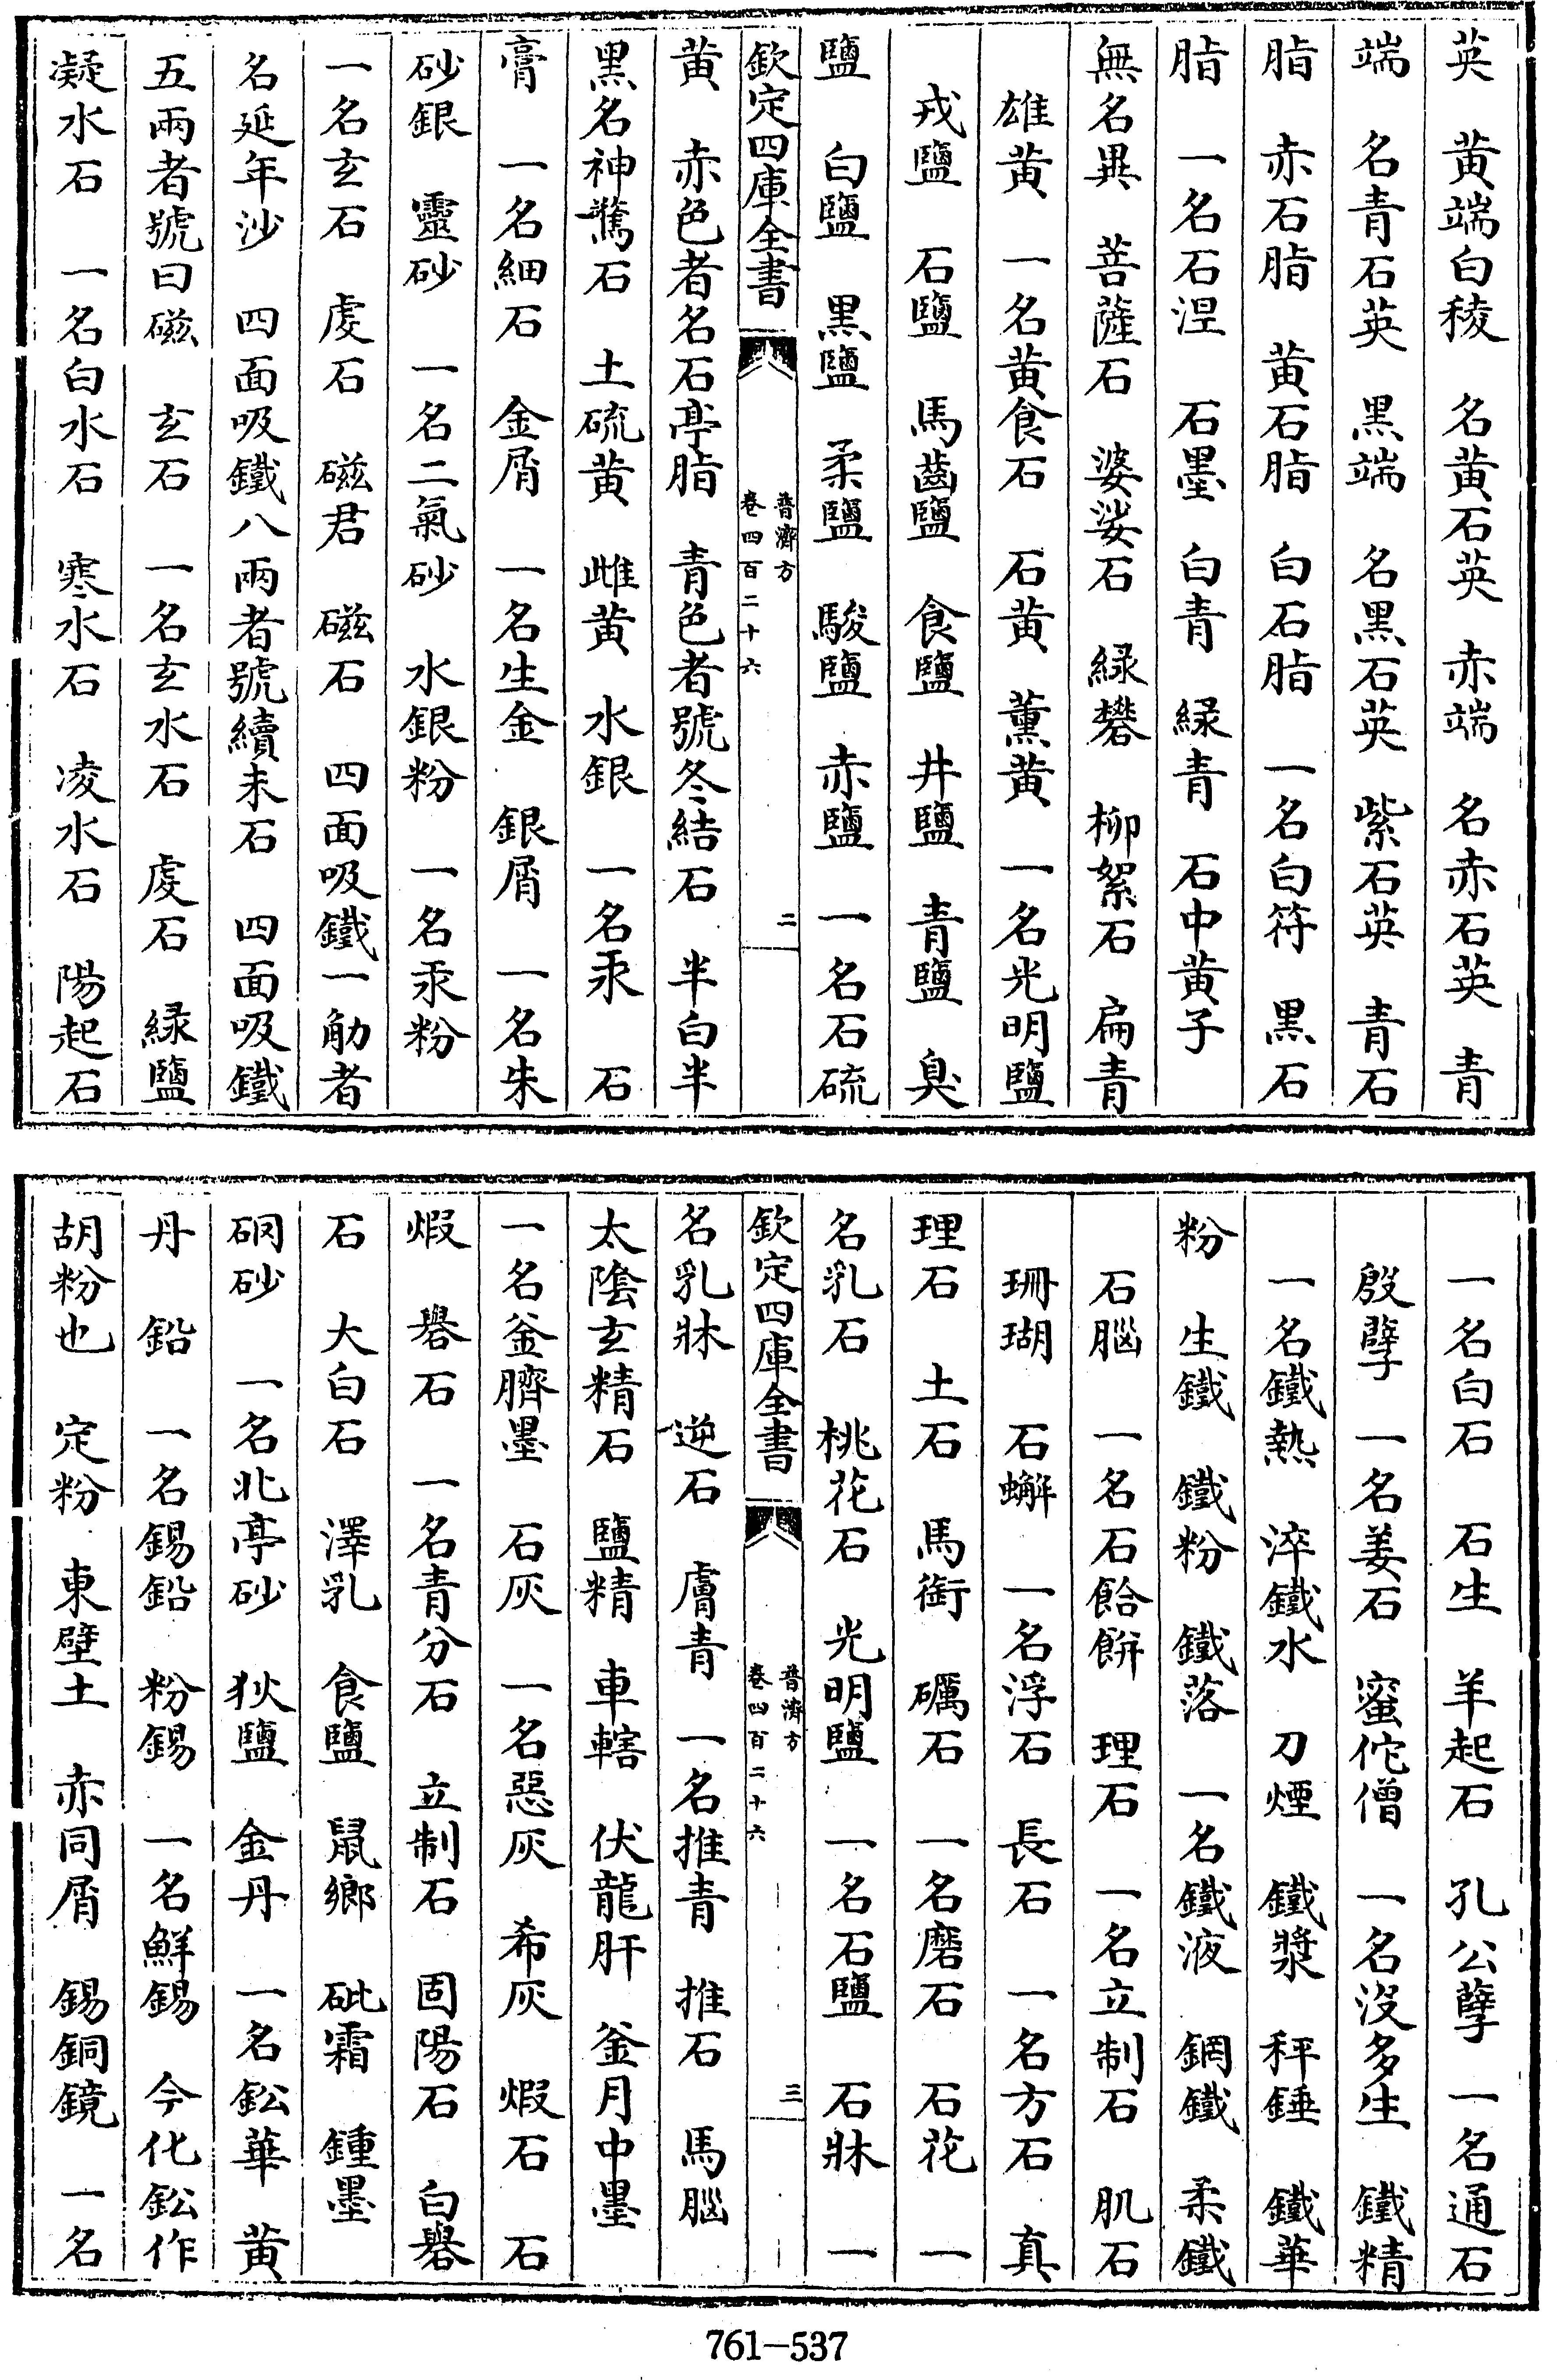 英　黄端白稜　名黄石英　赤端　名赤石英　青
端　名青石英　黒端　名黒石英　紫石英　青石
脂　赤石脂　黄石脂　白石脂　一名白符　黒石
脂　一名石涅　石墨　白青　緑青　石中黄子
無名異　菩薩石　婆娑石　緑礬　柳絮石　扁青
雄黄　一名黄食石　石黄　薫黄　一名光明鹽
戎鹽　石鹽　馬齒鹽　食鹽　井鹽　青鹽　臭
鹽　白鹽　黒鹽　柔鹽　駿鹽　赤鹽　一名石硫
欽定四庫全書　普濟方　卷四百二十六　二
黄　赤色者名石亭脂　青色者號冬結石　半白半
黒名神驚石　土硫黄　雌黄　水銀　一名汞　石
膏　一名細石　金屑　一名生金　銀屑　一名朱
砂銀　靈砂　一名二氣砂　水銀粉　一名汞粉
一名玄石　處石　磁君　磁石　四面吸鐵一觔者
名延年沙　四面吸鐵八兩者號續未石　四面吸鐵
五兩者號曰磁　玄石　一名玄水石　處石　緑鹽
凝水石　一名白水石　寒水石　凌水石　陽起石
一名白石　石生　羊起石　孔公孽　一名通石
殷孽　一名姜石　蜜佗僧　一名沒多生　鐵精
一名鐵熱　淬鐵水　刀煙　鐵漿　秤錘　鐵華
粉　生鐵　鐵粉　鐵落　一名鐵液　鋼鐵　柔鐵
石腦　一名石飴餅　理石　一名立制石　肌石
珊瑚　石蠏　一名浮石　長石　一名方石　真
理石　土石　馬銜　礪石　一名磨石　石花　一
名乳石　桃花石　光明鹽　一名石鹽　石牀　一
欽定四庫全書　普濟方　卷四百二十六　三
名乳牀　逆石　膚青　一名推青　推石　馬腦
太陰玄精石　鹽精　車轄　伏龍肝　釜月中墨
一名釜臍墨　石灰　一名惡灰　希灰　煆石　石
煆　礜石　一名青分石　立制石　固陽石　白礜
石　大白石　澤乳　食鹽　鼠鄉　砒霜　鍾墨
硇砂　一名北亭砂　狄鹽　金丹　一名鈆華　黄
丹　鉛　一名錫鉛　粉錫　一名鮮錫　今化鈆作
胡粉也　定粉　東壁土　赤同屑　錫銅鏡　一名
761-537